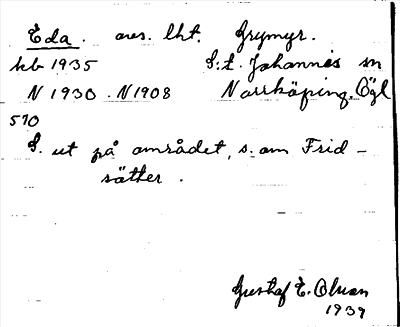 Eda. avs. lht. Grymyr.
kb 1935 S:t. Johannes sn
N 1930. N 1908 Norrköping, Ögl
570
S. ut på området, s. om Frid-
sätter.
Gustaf E. Olsson
1939